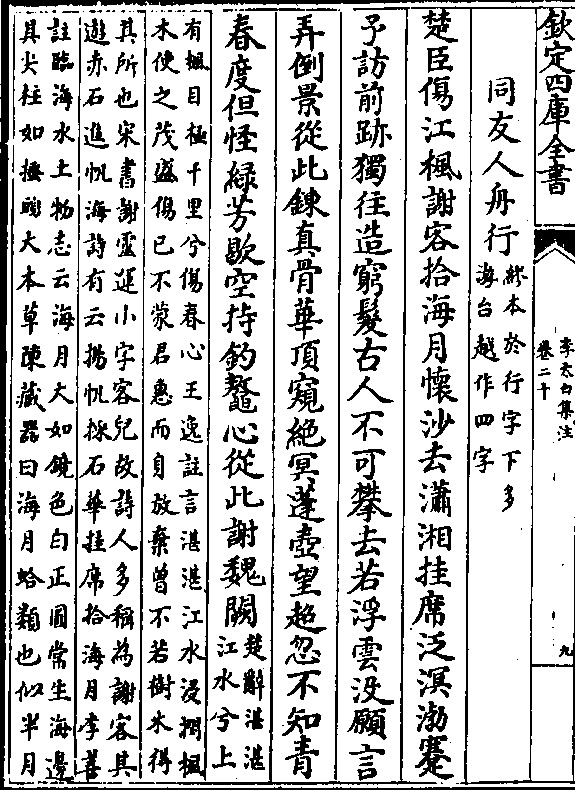 欽定四庫全書
李太白集注
卷二十
九
同友人舟行
繆本於行字下多
游台越作四字
楚臣傷江楓謝客拾海月懷沙去瀟湘挂席泛溟渤蹇
予訪前跡獨往造窮髮古人不可攀去若浮雲没願言
弄倒景從此鍊真骨華頂窺絶冥蓬壺望超忽不知青
春度但怪緑芳歇空持釣鼇心從此謝魏闕
楚辭湛湛
江水兮上
有楓目極千里兮傷春心王逸註言湛湛江水浸潤楓
木使之茂盛傷已不蒙君惠而自放棄曾不若樹木得
其所也宋書謝靈運小字客兒故詩人多稱為謝客其
遊赤石進帆海詩有云揚帆採石華挂席拾海月李善
註臨海水土物志云海月大如鏡色白正圓常生海邊
其尖柱如搔頭大本草陳藏器曰海月蛤類也似半月